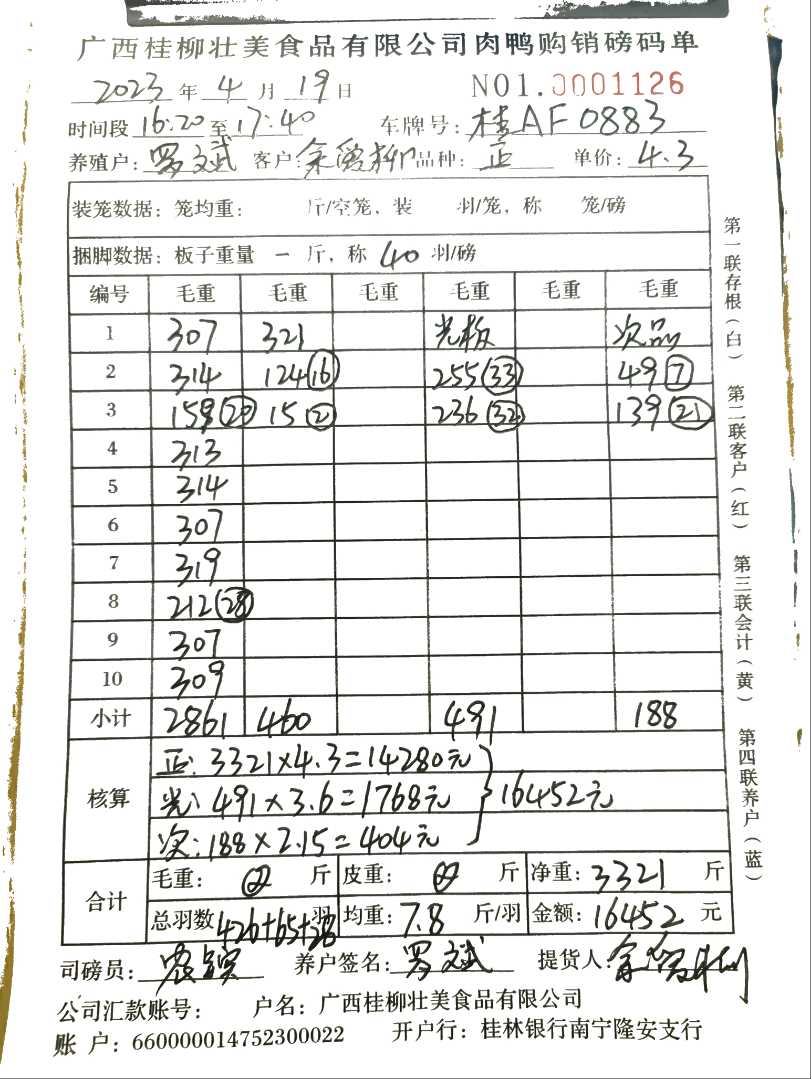 广西桂柳壮美食品有限公司肉鸭购销磅码单
2023 年 4 月 19 日 NO1.0001126
时间段 16:20 至 17:40 车牌号: 桂AF0883
养殖户: 罗文斌 客户: 品种: 正 单价: 4.3
装笼数据: 笼均重: 斤/空笼, 装 羽/笼, 称 笼/磅
捆脚数据: 板子重量 一 斤, 称 40 羽/磅
编号 毛重 毛重 毛重 毛重 毛重 毛重
1 307 321 光板 次品
2 314 124(16) 255(33) 49(7)
3 159(20) 15(2) 236(32) 139(21)
4 313
5 314
6 307
7 319
8 212(28)
9 307
10 309
小计 2861 460 491 188
核算 正: 3321×4.3=14280元
光: 491×3.6=1768元 16452元
次: 188×2.15=404元
合计 毛重: 斤 皮重: 斤 净重: 3321 斤
总羽数 426+65+28 羽 均重: 7.8 斤/羽 金额: 16452 元
司磅员: 养户签名: 罗文斌 提货人:
公司汇款账号: 户名: 广西桂柳壮美食品有限公司
账 户: 660000014752300022 开户行: 桂林银行南宁隆安支行
第一联存根(白)
第二联客户(红)
第三联会计(黄)
第四联养户(蓝)